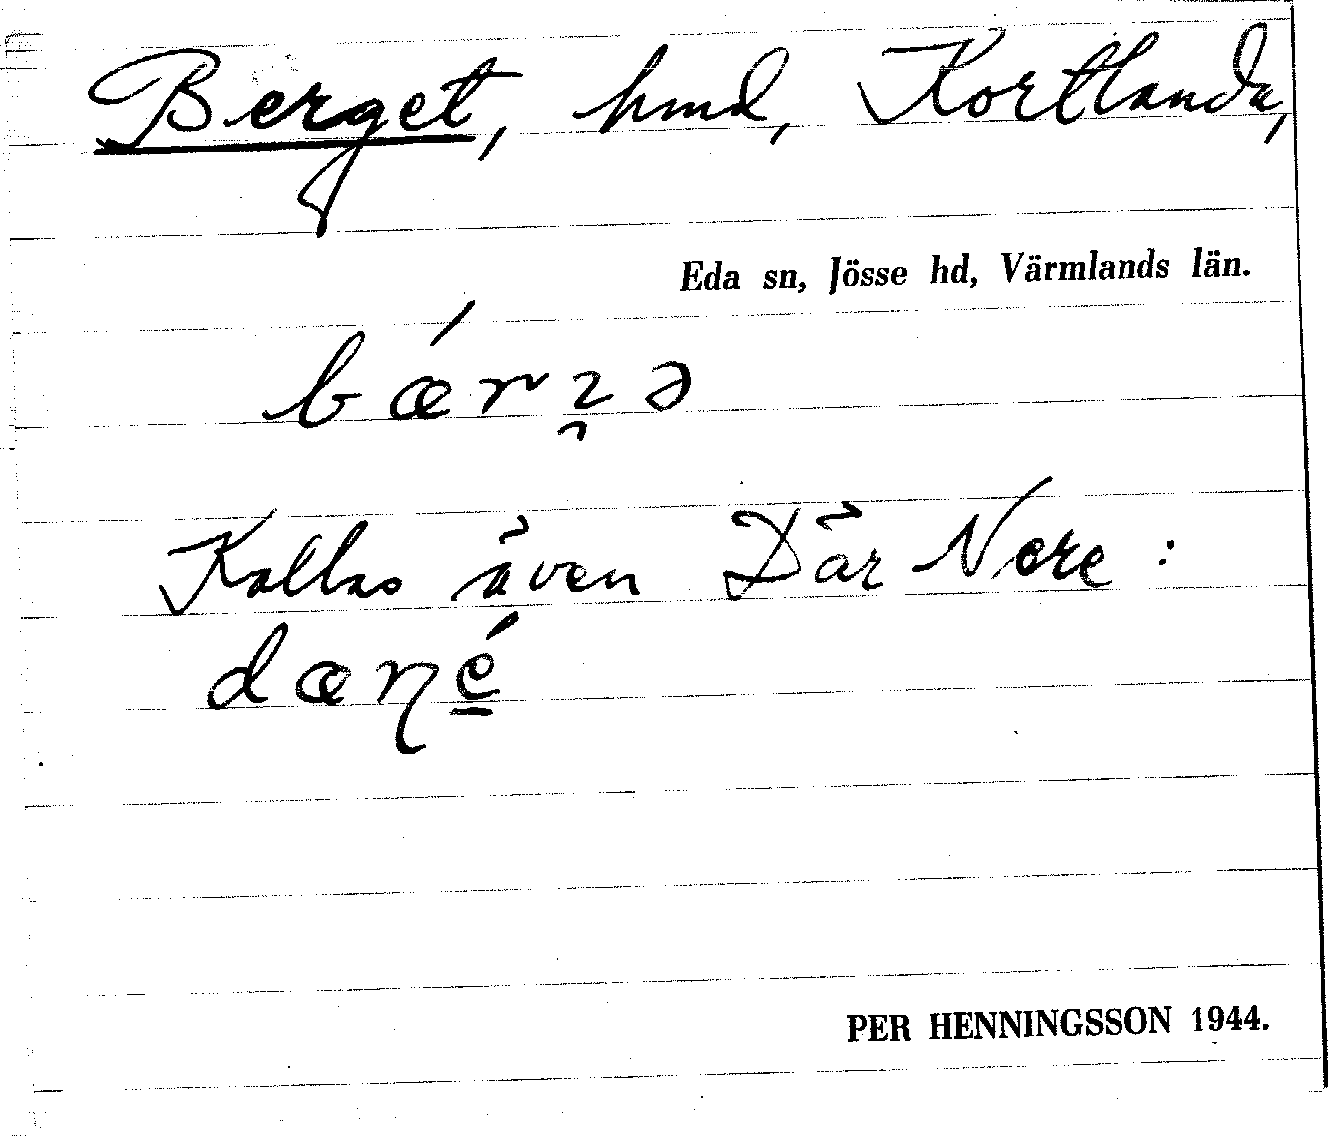 Berget, hmd, Kortlanda,
Eda sn, Jösse hd, Värmlands län.
bǽrʒ̑ə
Kallas även Där Nere:
dæɳé̲
PER HENNINGSSON 1944.